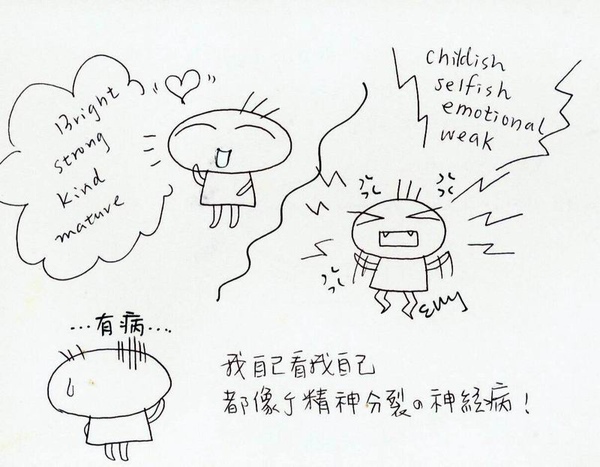 Bright
strong
kind
mature
childish
selfish
emotional
weak
...有病....
我自己看我自己
都像精神分裂の神経病!